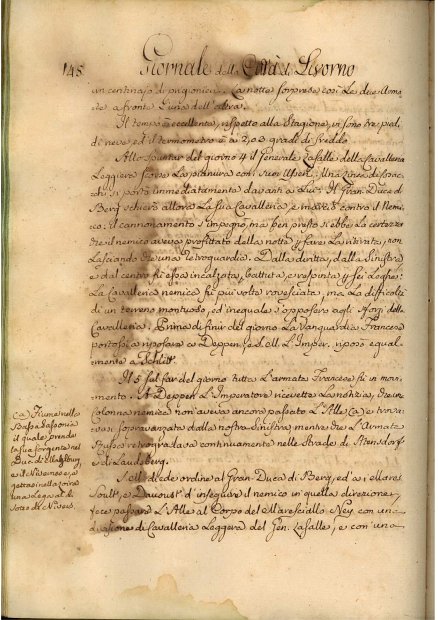 145. Giornale della Città di Livorno
un centinajo di prigionieri. La notte sorprese così le due Arma-
te a fronte l'una dell'altra.
Il tempo è eccellente, rispetto alla Stagione, vi sono tre piedi
di neve, ed il termometro è a 2, o 3 gradi di freddo
Allo spuntar del giorno 4 il Generale Lasalle della Cavalleria
Leggiera scorse la pianura con i suoi Usseri. Una linea di Cosac-
chi si portò immediatamente davanti a Lui: Il Gran Duca di
Berg schierò allora la sua Cavalleria, e marciò contro il Nemi-
co: il cannonamento s'impegnò, ma ben presto si ebbe la certezza
che il nemico aveva profittato della notte per fare la ritirata, non
lasciando che una retroguardia. Dalla diritta, dalla Sinistra
e dal centro fù essa incalzata, battuta, e respinta 6 leghe:
La Cavalleria nemica fù più volte rovesciata, ma la difficoltà
di un terreno montuoso, ed ineguale s'opposero agli sforzi della
Cavalleria. Prima di finir del giorno la Vanguardia Francese
portossi a riposare a Deppen, e l'Imper. riposò equal-
mente a Schlitt.
Il 5 ful far del giorno tutta l'armata Francese fù in movi-
mento: A Deppen l'Imperatore ricevette la notizia, che una
colonna nemica non aveva ancora passato l'Alle (a) e trova-
vasi sopravanzata dalla nostra Sinistra, mentre che l'Armata
Russa ritiravasi continuamente nelle Strade di Arensdorf
e di Landsberg.
S. M. diede ordine al Gran Duca di Berg, ed a' i Mares.
Soult, e Davoust d'inseguire il nemico in quella direzione,
fece passare l'Alle al Corpo del Maresciallo Ney, con una
divisione di Cavalleria Leggera del Gen. Lasalle, e con una
(a) Fiume nella
Bassa Sassonia
il quale prende
la sua sorgente nel
e si
getta in
una Lega al di
sotto di